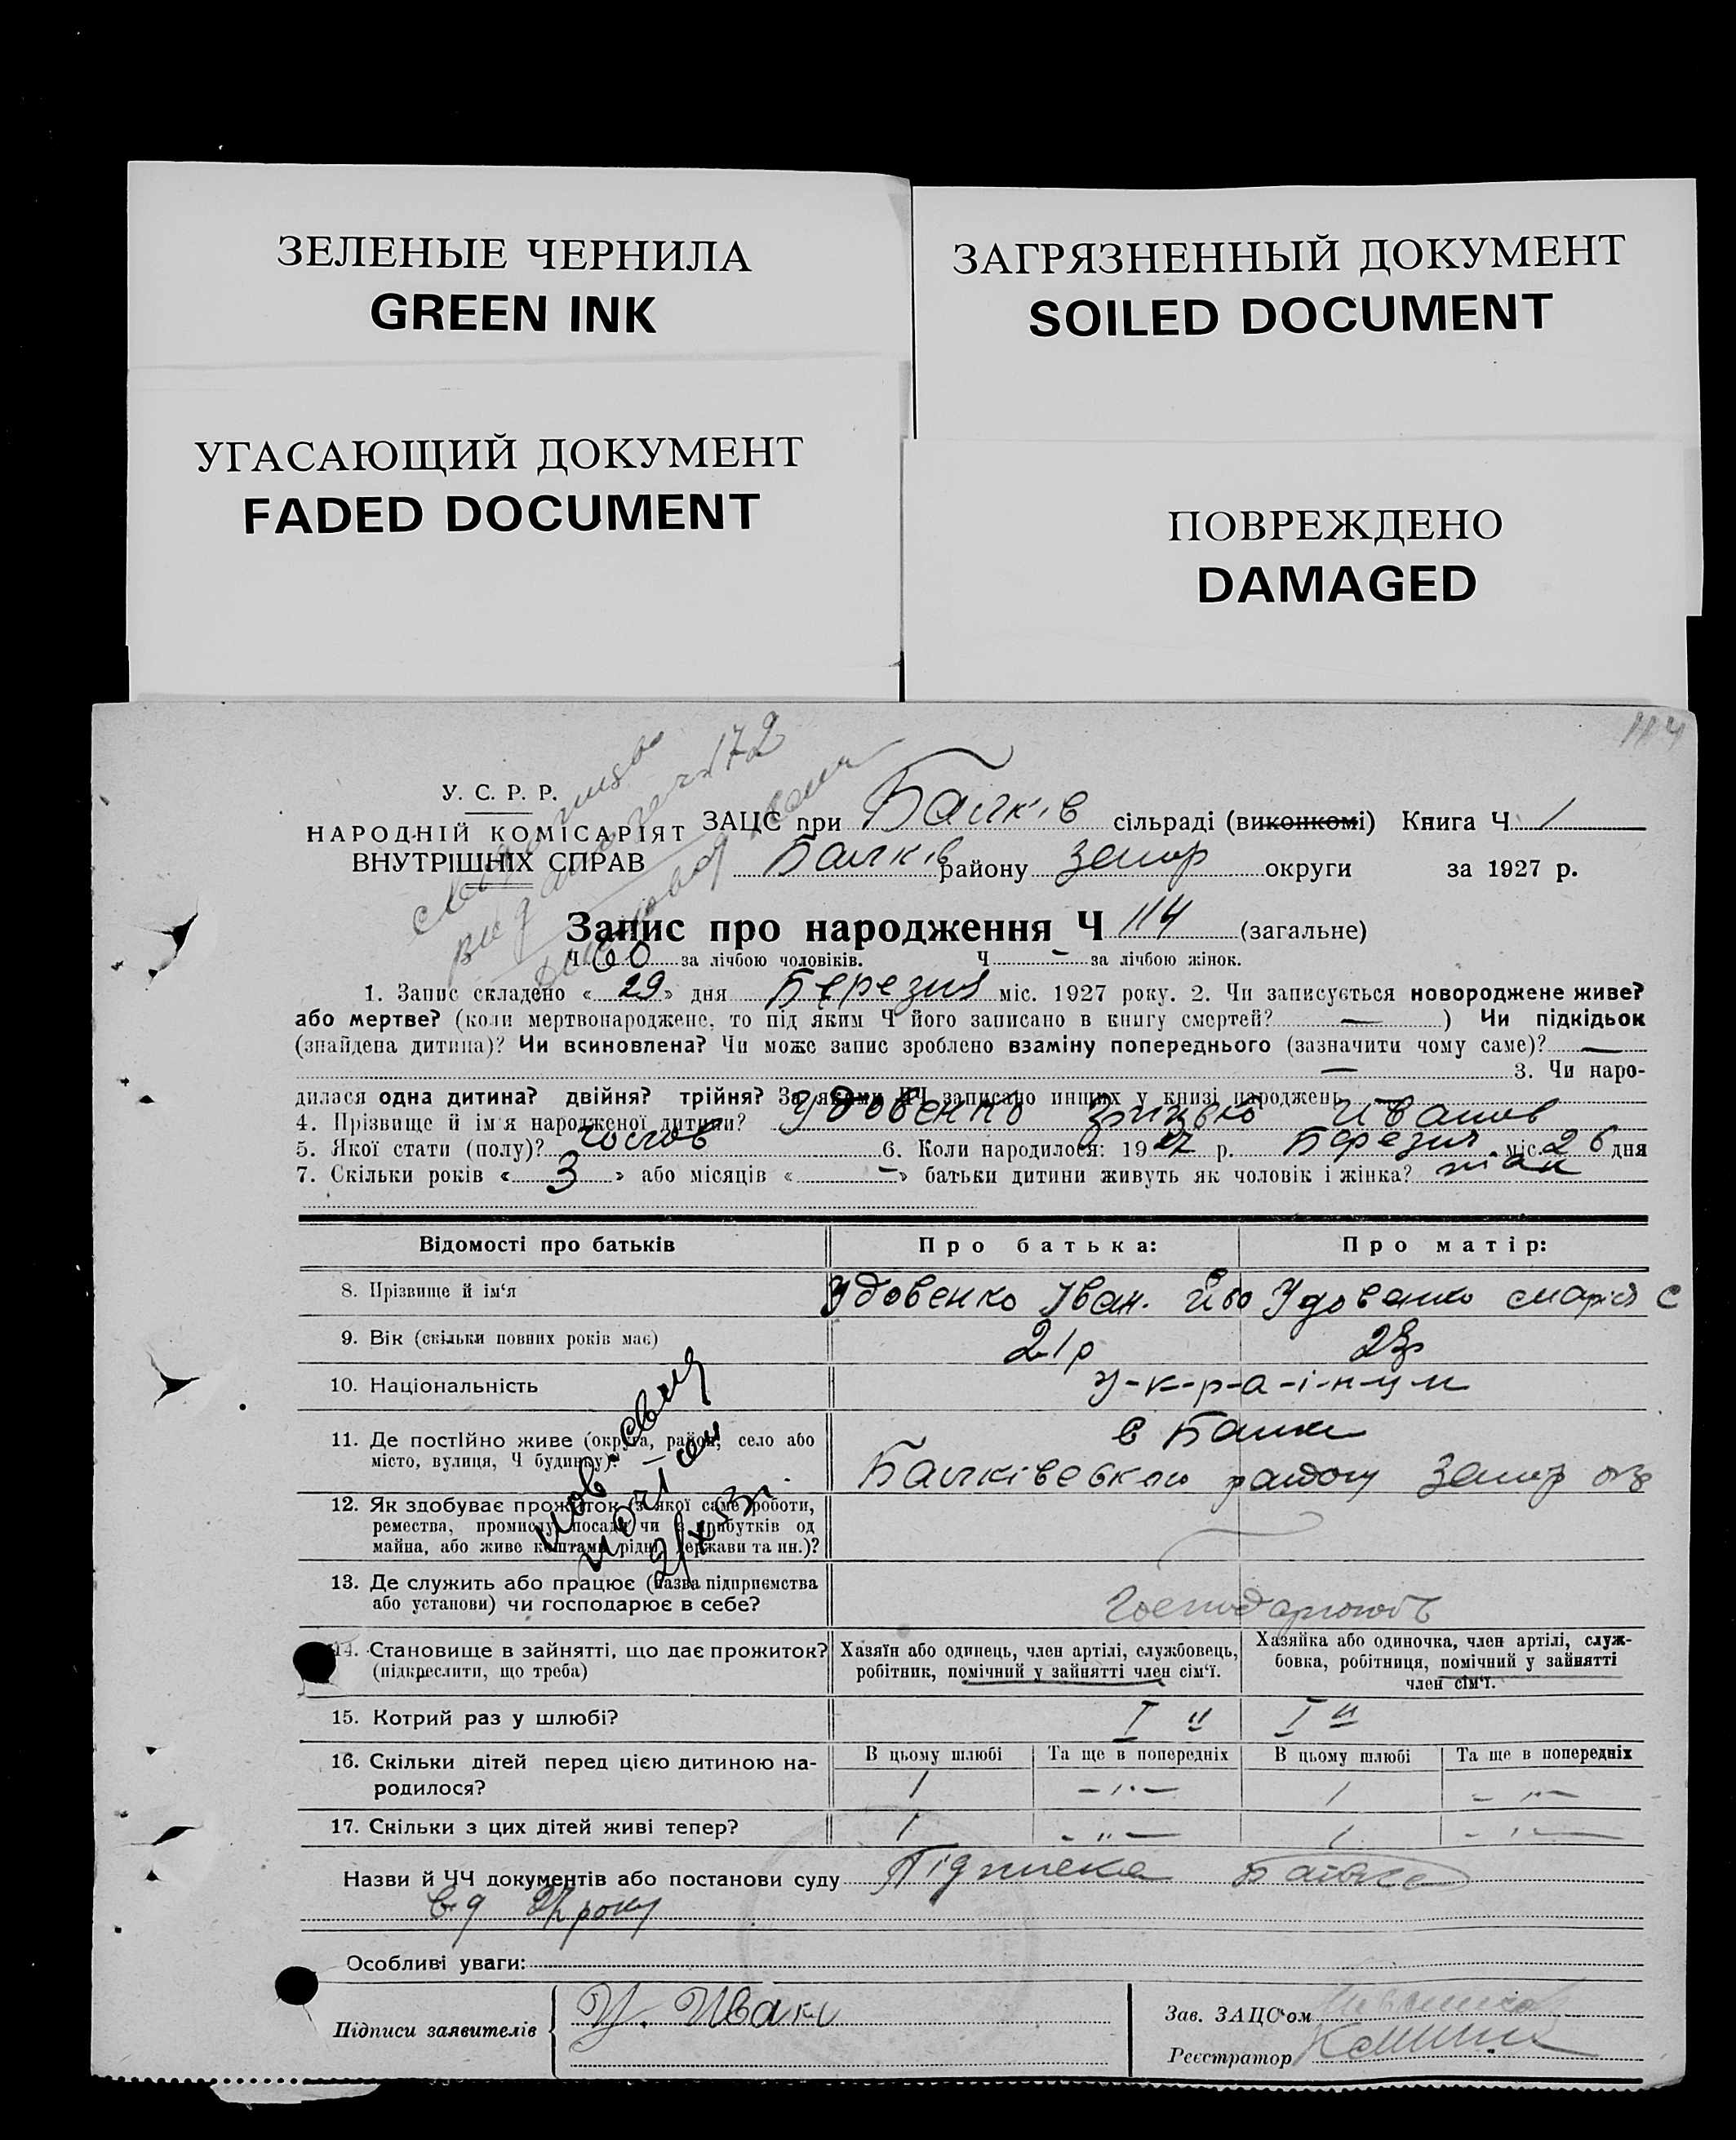 ЗЕЛЕНЫЕ ЧЕРНИЛА
GREEN INK
ЗАГРЯЗНЕННЫЙ ДОКУМЕНТ
SOILED DOCUMENT
УГАСАЮЩИЙ ДОКУМЕНТ
FADED DOCUMENT
ПОВРЕЖДЕНО
DAMAGED
114
172
У. С. Р. Р.
НАРОДНІЙ КОМІСАРІЯТ
ВНУТРІШНІХ СПРАВ
ЗАЦС при Балків сільраді (виконкомі) Книга Ч. 1
Балків району Запор округи за 1927 р.
Запис про народження Ч 114 (загальне)
Ч 60 за лічбою чоловіків. Ч - за лічбою жінок.
1. Запис складено « 29 » дня Березня міс. 1927 року. 2. Чи записується новороджене живе?
або мертве? (коли мертвонароджене, то під яким Ч його записано в книгу смертей? — ) Чи підкідьок
(знайдена дитина)? Чи всиновлена? Чи може запис зроблено взаміну попереднього (зазначити чому саме)? —
— 3. Чи наро-
дилася одна дитина? двійня? трійня? За якими ЧЧ записано инших у книзі народжень
4. Прізвище й ім'я народженої дитини? Удовенко Грицько Иванов
5. Якої стати (полу)? чолов 6. Коли народилося: 1927 р. Березня міс. 26 дня
7. Скільки років « 3 » або місяців « - » батьки дитини живуть як чоловік і жінка? так
Відомості про батьків
Про батька:
Про матір:
8. Прізвище й ім'я
Удовенко Іван. Удовенко Марія С
9. Вік (скільки повних років має)
21р 23р
10. Національність
у-к-р-а-ї-н-ц-и
11. Де постійно живе (округа, район, село або
місто, вулиця, Ч будинку)?
с Балки
Балківського району Запор окр
12. Як здобуває прожиток (з якої саме роботи,
ремества, промислу, посади чи з прибутків од
майна, або живе коштами рідні, держави та ин.)?
13. Де служить або працює (назва підприємства
або установи) чи господарює в себе?
Господарюють
14. Становище в зайнятті, що дає прожиток?
(підкреслити, що треба)
Хазяїн або одинець, член артілі, службовець,
робітник, помічний у зайнятті член сім'ї.
Хазяйка або одиночка, член артілі, служ-
бовка, робітниця, помічний у зайнятті
член сім'ї.
15. Котрий раз у шлюбі?
I й I й
16. Скільки дітей перед цією дитиною на-
родилося?
В цьому шлюбі Та ще в попередніх В цьому шлюбі Та ще в попередніх
1 - " - 1 - " -
17. Скільки з цих дітей живі тепер?
1 - " - 1 - " -
Назви й ЧЧ документів або постанови суду Підписка Батька
від 27 року
Особливі уваги:
Підписи заявителів
У. Иван
Зав. ЗАЦС'ом
Реєстратор